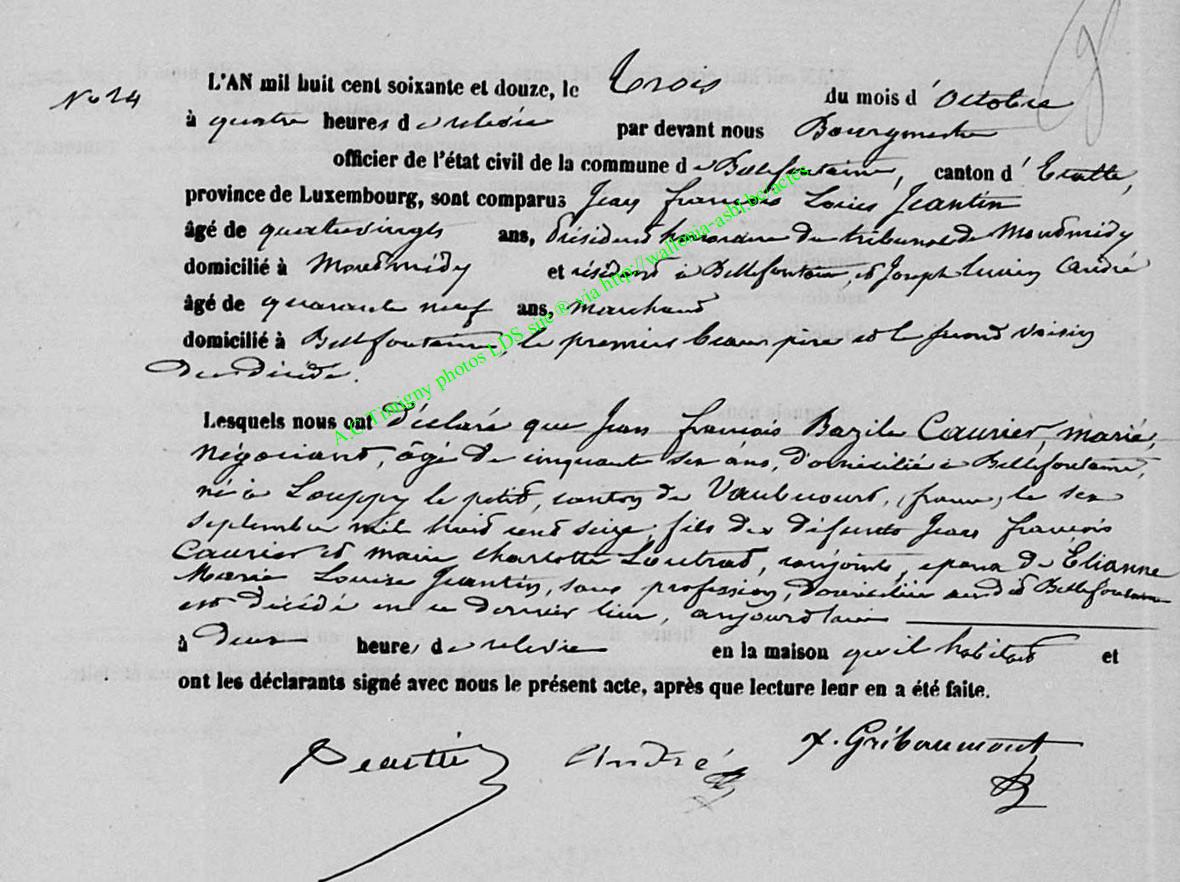 No 24
L'AN mil huit cent soixante et douze, le Trois du mois d'Octobre
à quatre heures de relevée par devant nous Bourgmestre
officier de l'état civil de la commune de Bellefontaine, canton d'Etalle,
province de Luxembourg, sont comparus Jean François Louis Jeantin
âgé de quatrevingts ans, Président honoraire du tribunal de Montmédy
domicilié à Montmédy et résidant à Bellefontaine, et Joseph Lucien André
âgé de quarante neuf ans, Marchand
domicilié à Bellefontaine, le premier beau père et le second voisin
du décédé.
Lesquels nous ont déclaré que Jean François Bazile Caurier, marié,
Négociant, âgé de cinquante six ans, domicilié à Bellefontaine,
né à Louppy le petit, canton de Vaubecourt, (france) le six
septembre mil huit cent seize, fils des défunts Jean François
Caurier et Marie Charlotte Loutrat, conjoints, époux de Elianne
Marie Louise Jeantin, sans profession, domiciliée audit Bellefontaine
est décédé en ce dernier lieu, aujourd'hui
à deux heures de relevée en la maison qu'il habitait et
ont les déclarants signé avec nous le présent acte, après que lecture leur en a été faite.
Jeantin André x. Gribaumont
A.C. Tintigny photos LDS site ® via http://wallonia-asbl.be/actes